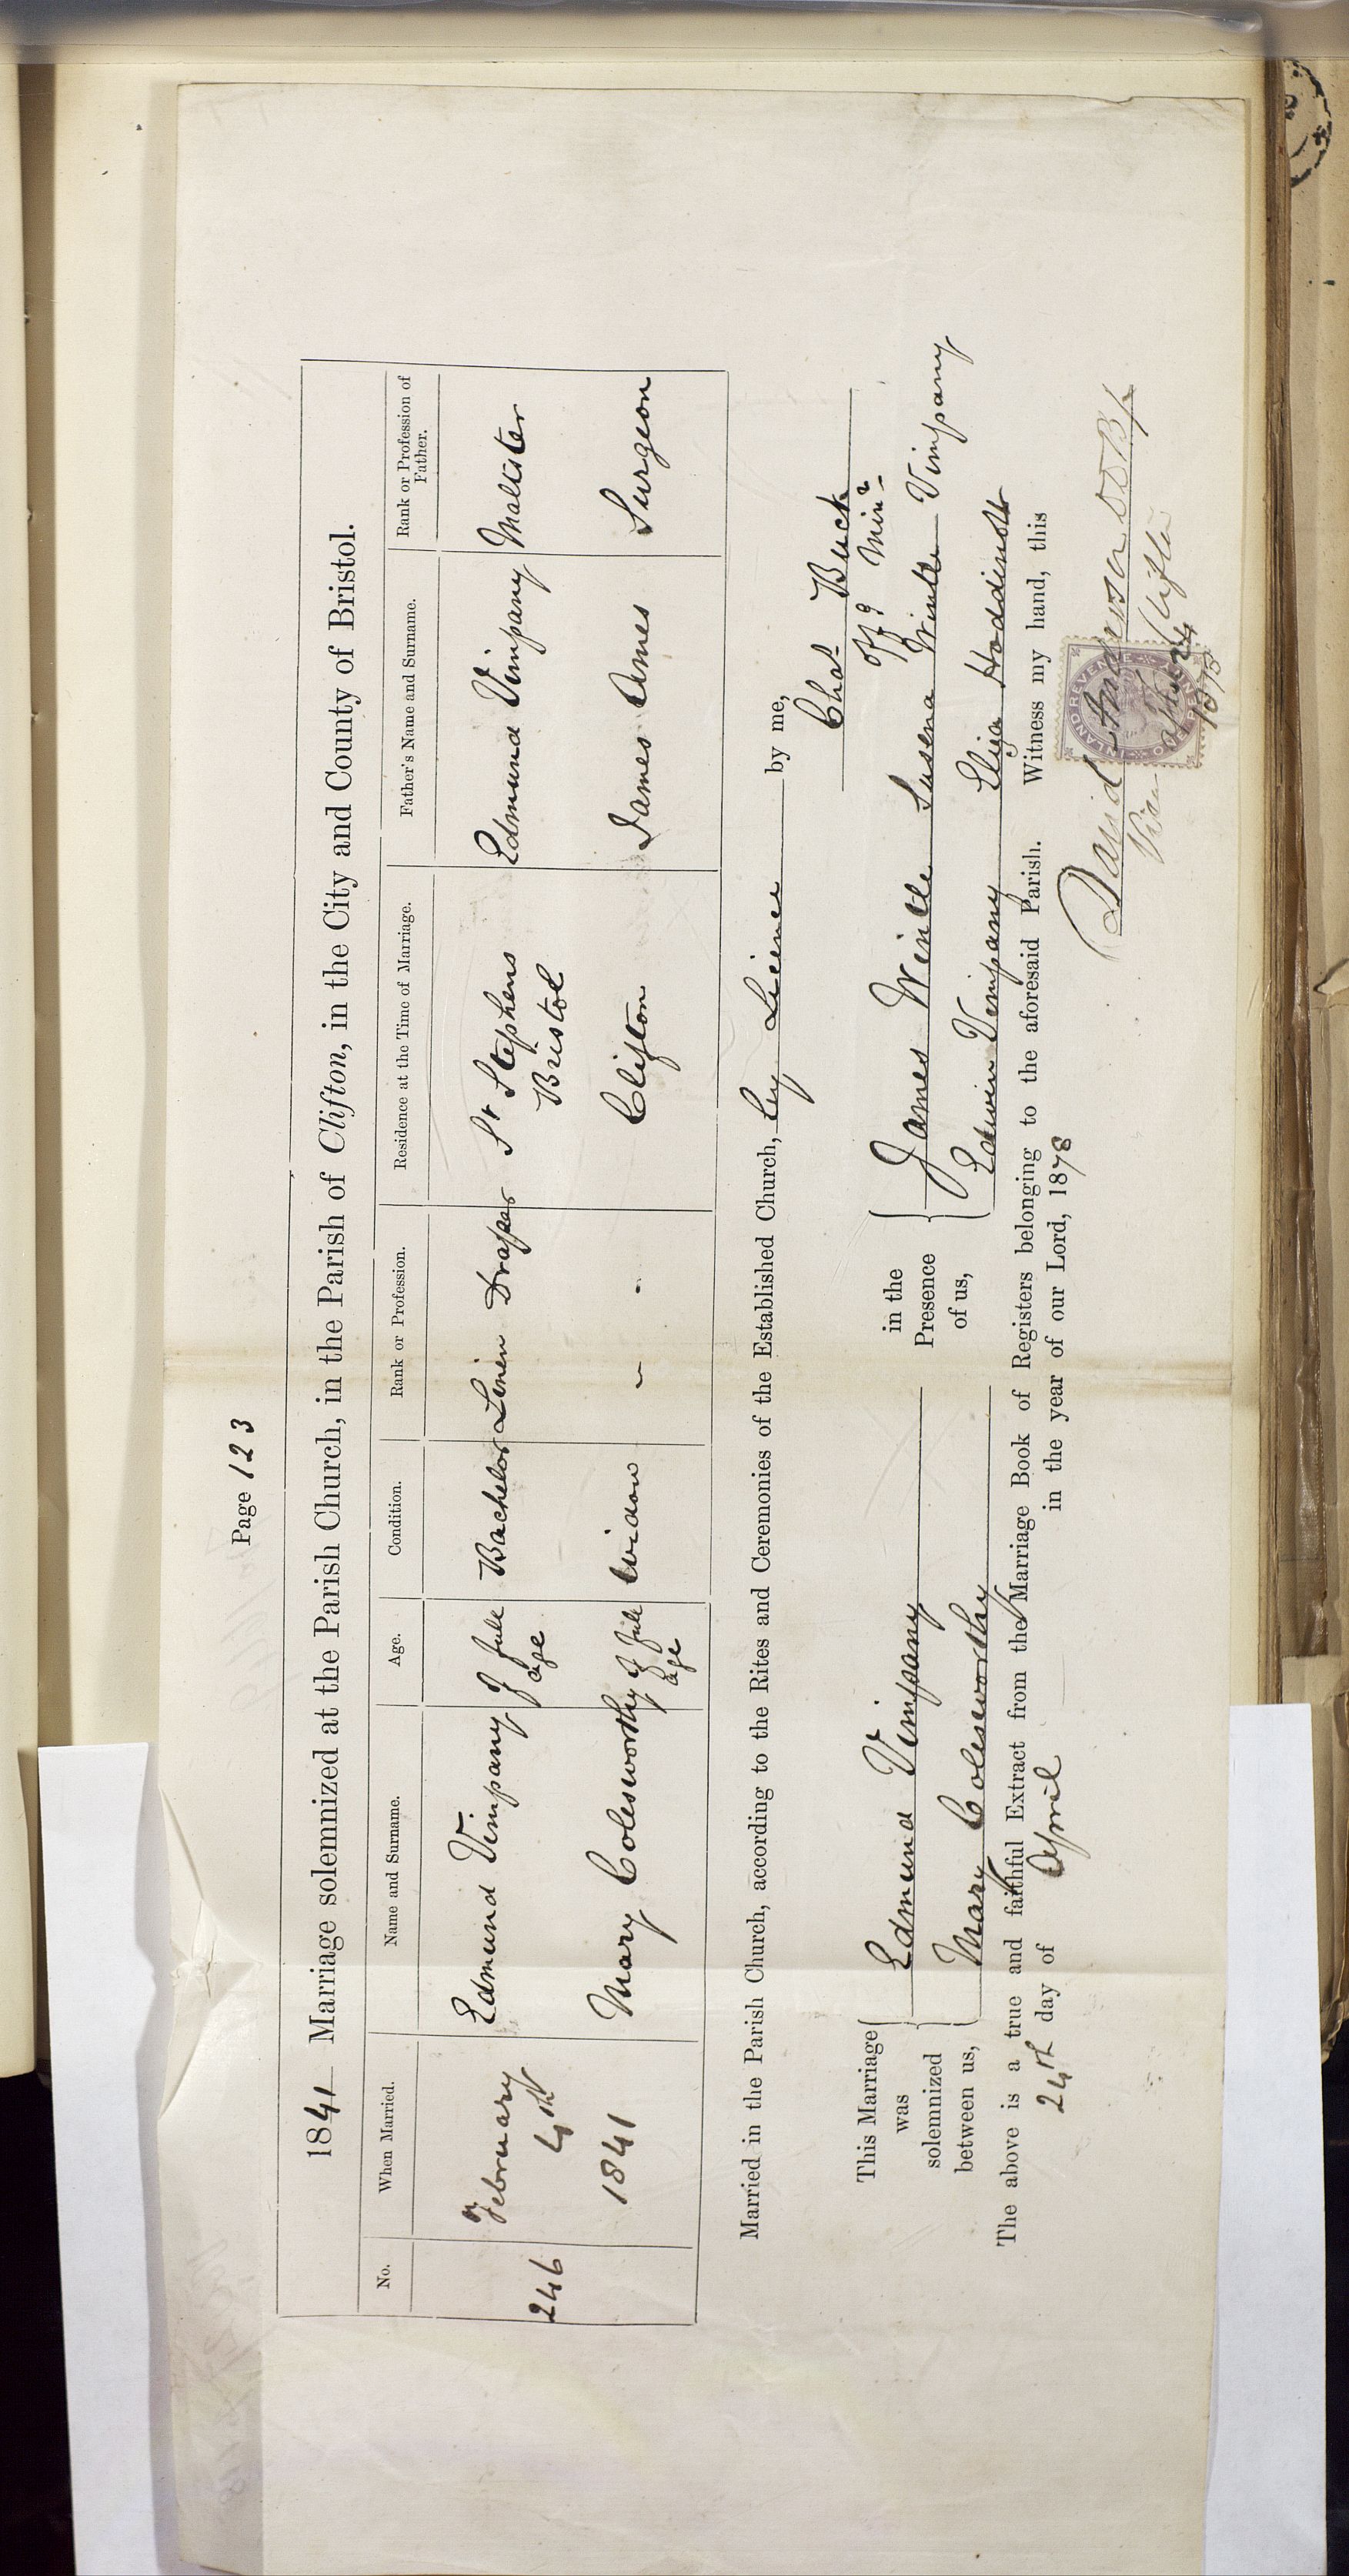 Page 123
1841 Marriage solemnized at the Parish Church, in the Parish of Clifton, in the City and County of Bristol.
No. When Married. Name and Surname. Age. Condition. Rank or Profession. Residence at the Time of Marriage. Father's Name and Surname. Rank or Profession of Father.
246 February 4th 1841 Edmund Vimpany of full age Bachelor Linen Draper St Stephens Bristol Edmund Vimpany Maltster
Mary Colesworthy of full age Widow - - Clifton James Ames Surgeon
Married in the Parish Church, according to the Rites and Ceremonies of the Established Church, by Licence by me,
Chas Buck
Offg Minr
This Marriage was solemnized between us,
Edmund Vimpany
Mary Colesworthy
in the Presence of us,
James Wintle Susena Wintle Vimpany
Edwin Vimpany Eliza Hoddinott
The above is a true and faithful Extract from the Marriage Book of Registers belonging to the aforesaid Parish. Witness my hand, this
24th day of April in the year of our Lord, 1878
David Anderson
Clifton
INLAND REVENUE
ONE PENNY
April 24
1878